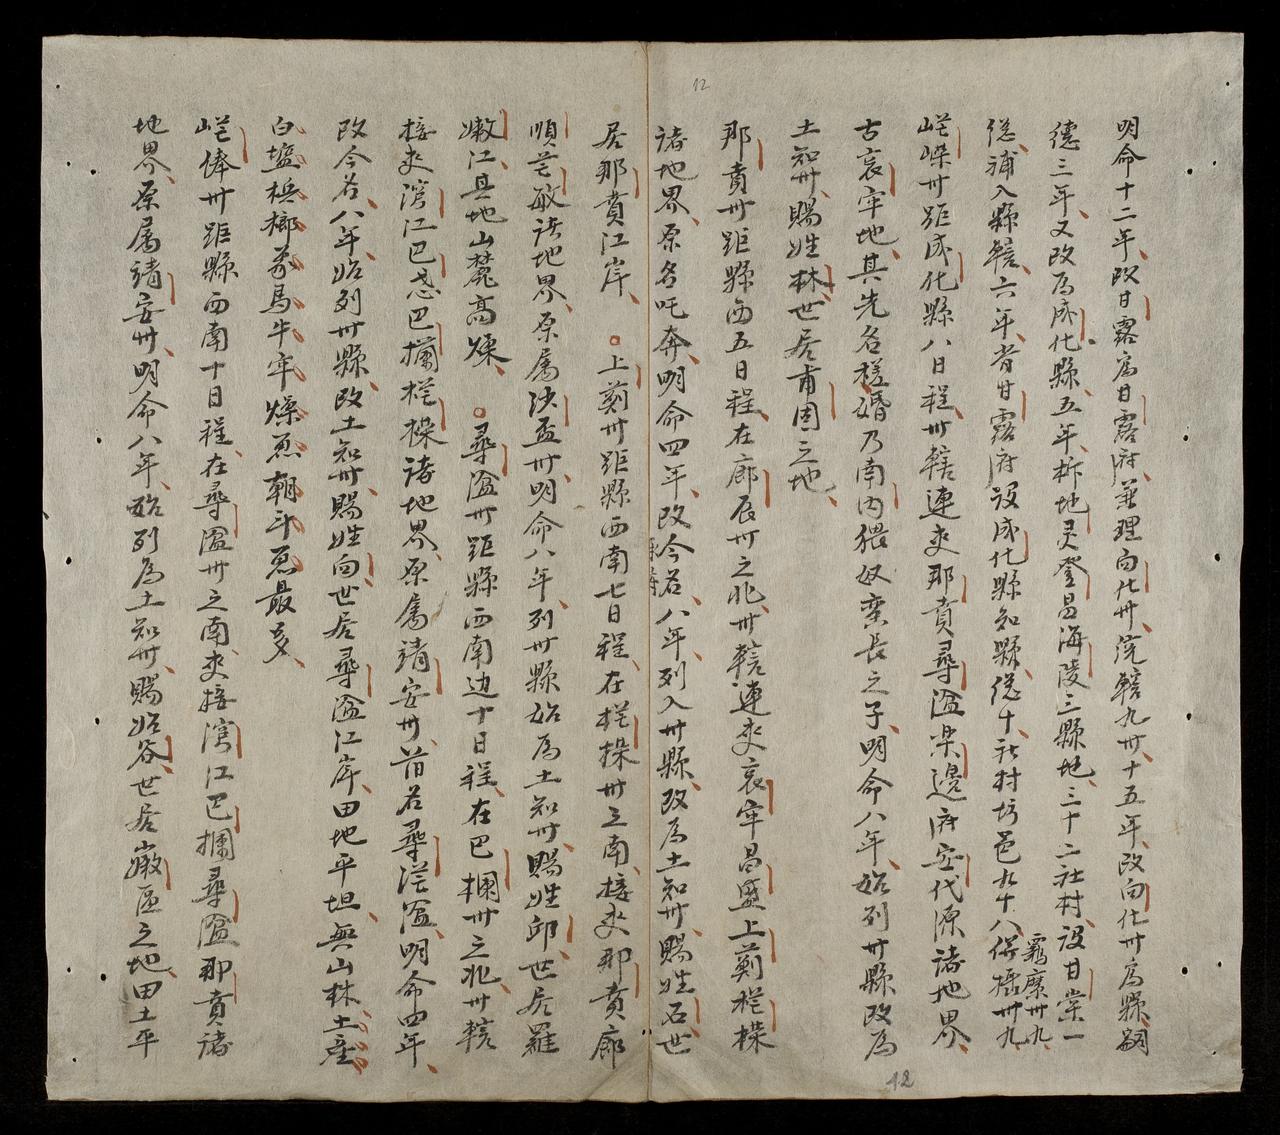 12
明命十二年改甘露爲甘露府兼理向化州浣轄九州十五年改向化州爲縣嗣
德三年又改爲成化縣五年析地灵登昌海陵三縣地三十二社村設甘棠一
總補入縣轄六年省甘露府設成化縣知縣總十社村坊邑九十八併據州九
羈縻州九
嵯㠂州距成化縣八日程州轄連夾那賁尋湓樂邊府安代源諸地界
古哀牢地其先名槎婚乃南內猥奴蛮長之子明命八年始列州縣改爲
土知州賜姓林世居甫固之地
那賁州距縣西五日程在廊辰州之北州轄連夾哀牢昌盛上蓟槎㮲
諸地界原名吒奔明命四年改今名八年列入州縣改爲土知州賜姓石世
居那賁江岸 ○上蓟州距縣西南七日程在槎㮲州之南接夾那賁廊
順芒敏諸地界原屬決盃州明命八年列州縣始爲土知州賜姓邱世居羅
嫩江其地山麓高燥 ○尋湓州距縣西南边十日程在巴欄州之北州轄
接夾滈江巴忒巴攔槎㮲諸地界原屬靖安州昔名尋滢湓明命四年
改今名八年始列州縣改土知州賜姓向世居尋湓江岸田地平坦無山林土產
白塩檳榔象馬牛牢燥葱朝斗葱最多
嵯俸州距縣西南十日程在尋湓州之南夾接滈江巴攔尋湓那賁諸
地界原屬靖安州明命八年始列爲土知州賜姓谷世居嶶匝之地田土平
12